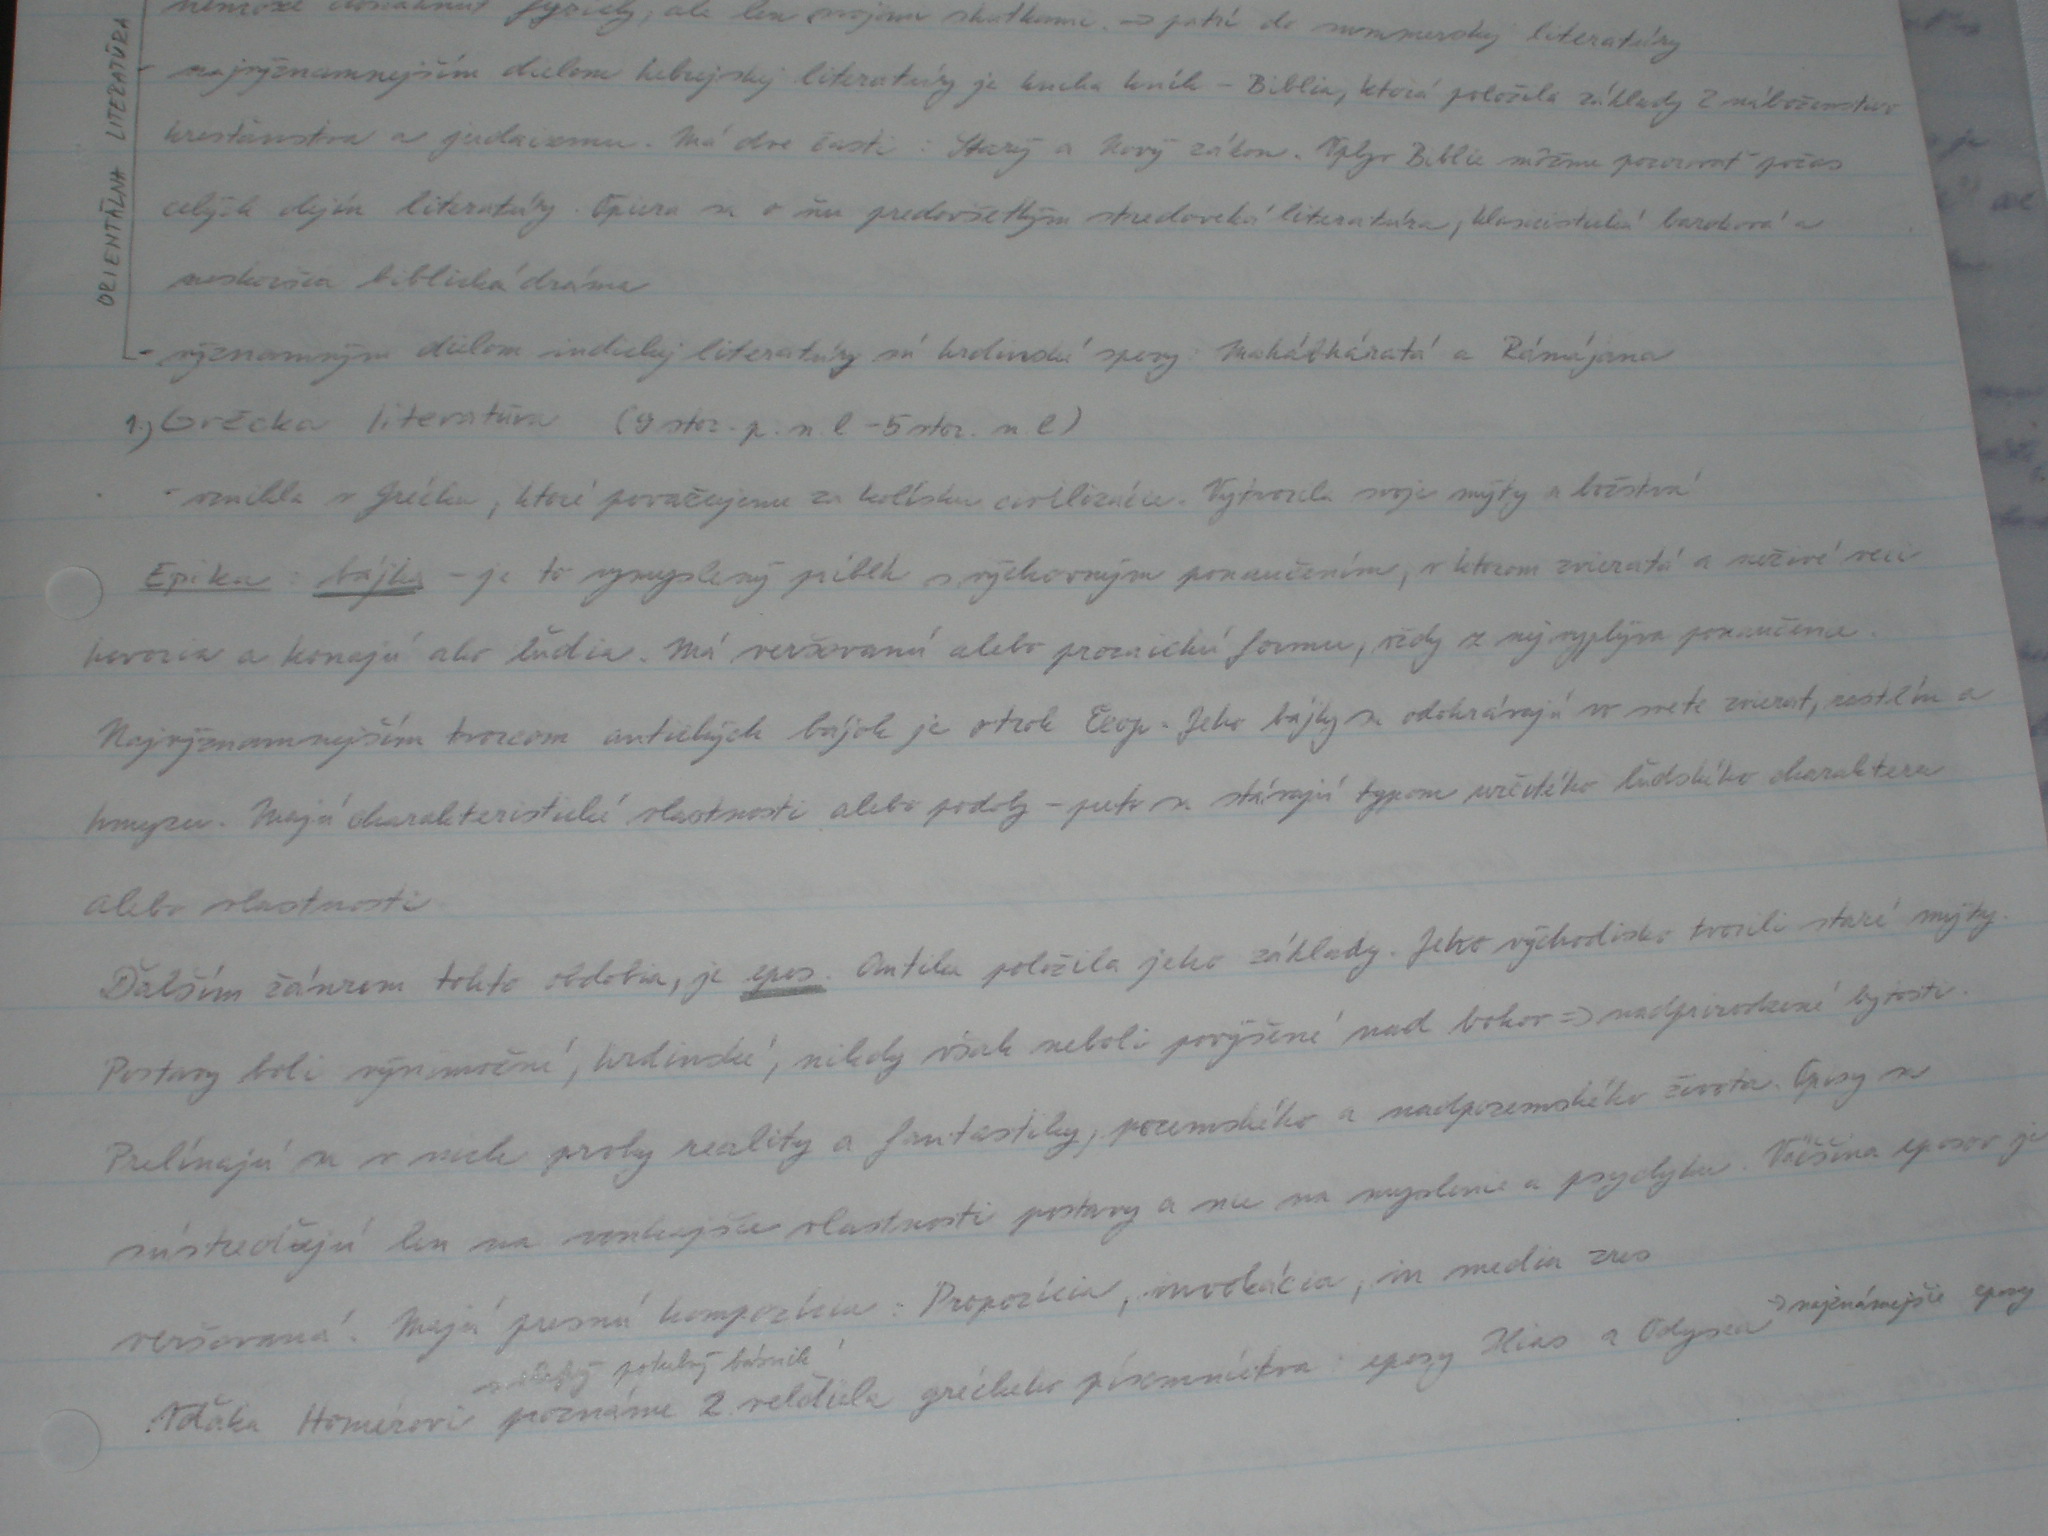 ORIENTÁLNA LITERATÚRA
nemôže dosiahnuť fyzicky, ale len svojimi skutkami. => patrí do summerskej literatúry
- najvýznamnejším dielom hebrejskej literatúry je kniha kníh - Biblia, ktorá položila základy 2 náboženstvo
kresťanstva a judaizmu. Má dve časti: Starý a Nový zákon. Vplyv Biblie môžme pozorovať počas
celých dejín literatúry. Opiera sa o ňu predovšetkým stredoveká literatúra, klasicistická baroková a
neskoršia biblická dráma
- významným dielom indickej literatúry sú hrdinské eposy: Mahábháratá a Rámájana
1.) Grécka literatúra (9 stor. p. n. l - 5 stor. n. l)
- vznikla v Grécku, ktoré považujeme za kolísku civilizácie. Vytvorila svoje mýty a božstvá
Epika: bájka - je to vymyslený príbeh s výchovným ponaučením, v ktorom zvieratá a neživé veci
hovoria a konajú ako ľudia. Má veršovanú alebo prozaickú formu, vždy z nej vyplýva ponaučenie.
Najvýznamnejším tvorcom antických bájok je otrok Ezop. Jeho bájky sa odohrávajú vo svete zvierat, rastlín a
hmyzu. Majú charakteristické vlastnosti alebo podoby - preto sa stávajú typom určitého ľudského charakteru
alebo vlastnosti.
Ďalším žánrom tohto obdobia, je epos. Antika položila jeho základy. Jeho východisko tvorili staré mýty.
Postavy boli výnimočné, hrdinské, nikdy však neboli povýšené nad bohov => nadprirodzené bytosti.
Prelínajú sa v nich prvky reality a fantastiky, pozemského a nadpozemského života. Eposy sa
sústreďujú len na vonkajšie vlastnosti postavy a nie na myslenie a psychiku. Väčšina eposov je
veršovaná. Majú presnú kompozíciu: Propozícia, invokácia, in media zres
slepý potulný básnik
Vďaka Homérovi poznáme 2 veľdiela gréckeho písomníctva: eposy Ilias a Odysea => najznámejšie eposy